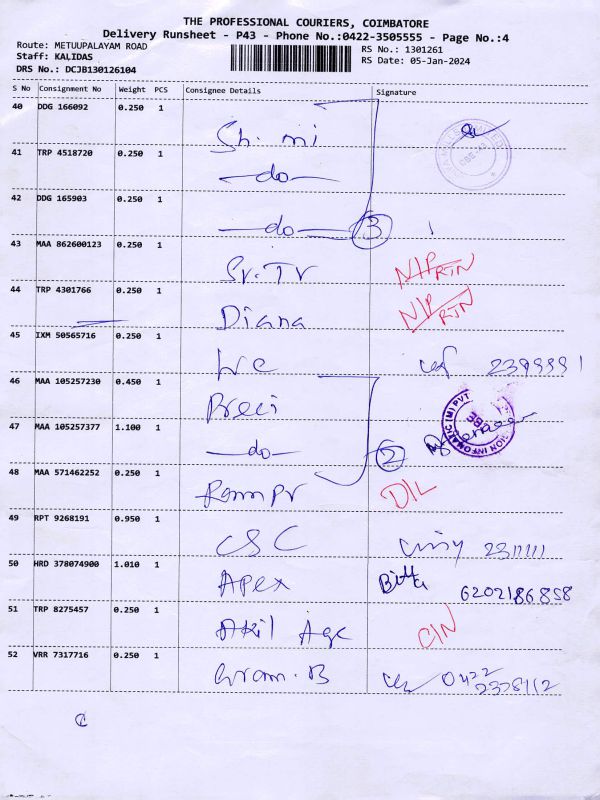 THE PROFESSIONAL COURIERS, COIMBATORE
Delivery Runsheet - P43 - Phone No.:0422-3505555 - Page No.:4
Route: METUUPALAYAM ROAD
RS No.: 1301261
Staff: KALIDAS
RS Date: 05-Jan-2024
DRS No.: DCJB130126104
S No Consignment No Weight PCS Consignee Details Signature
40 DDG 166092 0.250 1
Sh. mi
41 TRP 4518720 0.250 1
-do-
42 DDG 165903 0.250 1
-do- 3
43 MAA 862600123 0.250 1
Sr. Tr N/P RTN
44 TRP 4301766 0.250 1
Diana N/P RTN
45 IXM 50565716 0.250 1
46 MAA 105257230 0.450 1
47 MAA 105257377 1.100 1
-do- 2
48 MAA 571462252 0.250 1
Ramm Pr D/L
49 RPT 9268191 0.950 1
CSC 2311111
50 HRD 378074900 1.010 1
Apex 6202186858
51 TRP 8275457 0.250 1
Akil Age C/N
52 VRR 7317716 0.250 1
Gram. B 0422
2328112